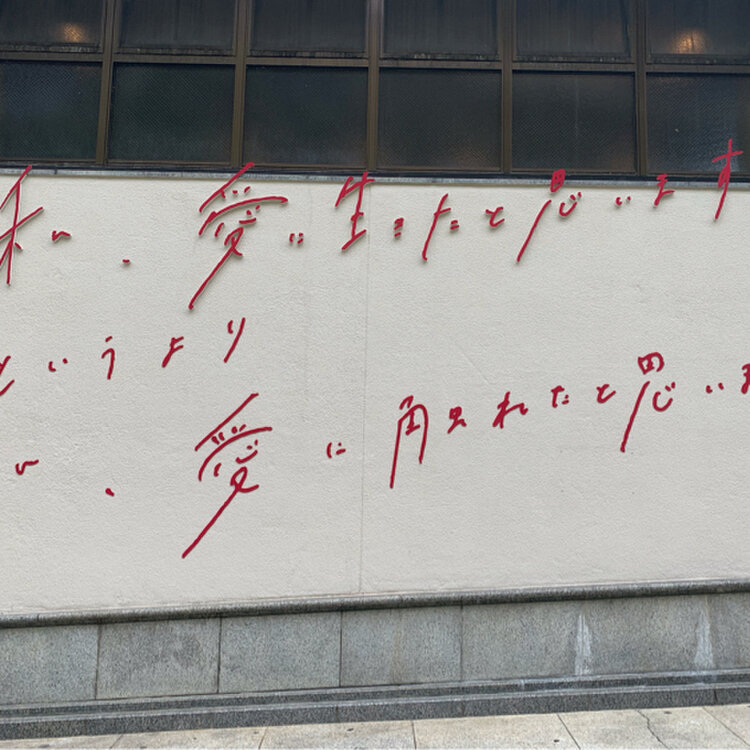 私は、愛に生きたと思います
というより
は、愛に触れたと思いま